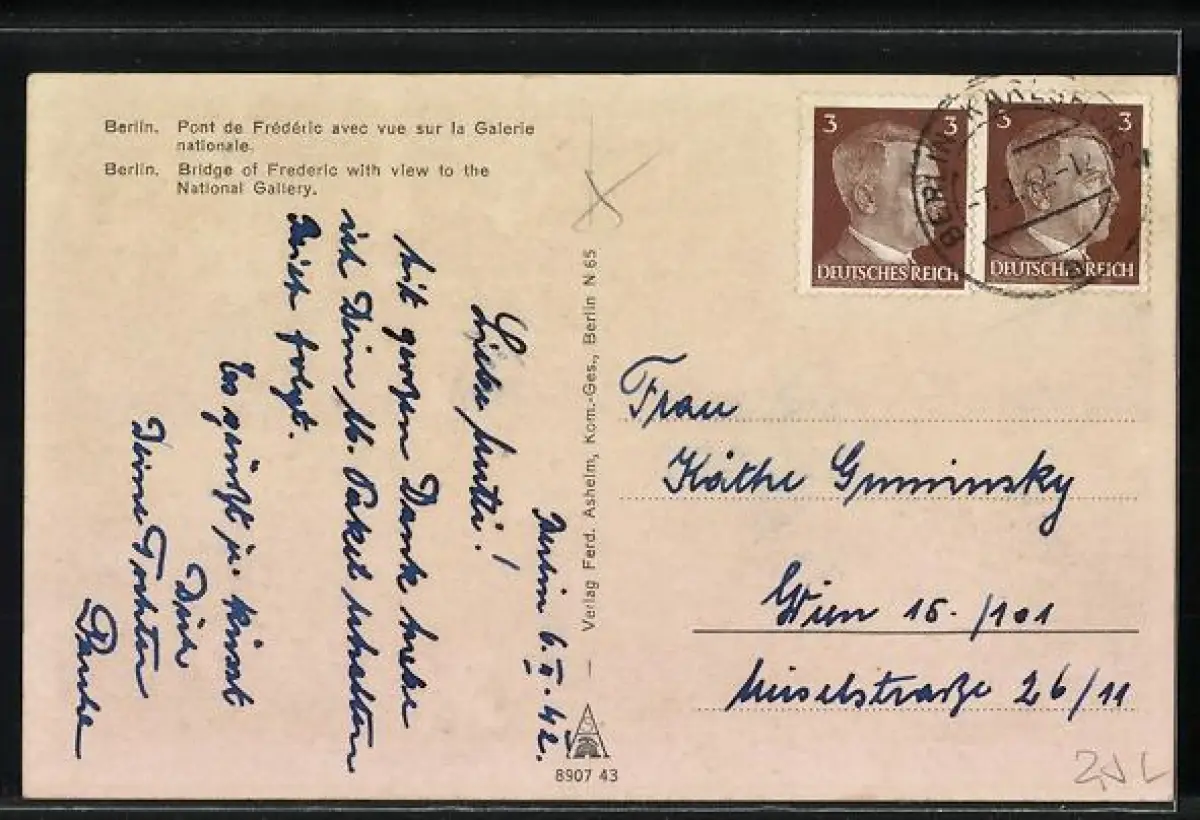 Berlin. Pont de Frédéric avec vue sur la Galerie
nationale.
Berlin. Bridge of Frederic with view to the
National Gallery.
Berlin 6.II.42.
Liebe Mutti!
Mit großen Dank habe
ich Dein Paket erhalten
Brief folgt.
Es grüßt u. küsst
Dich
Deine Tochter
Verlag Ferd. Ashelm, Kom.-Ges., Berlin N 65
8907 43
3 3
DEUTSCHES REICH
3 3
DEUTSCHES REICH
BERLIN
Frau
Käthe Guminsky
Wien 15./101
26/11